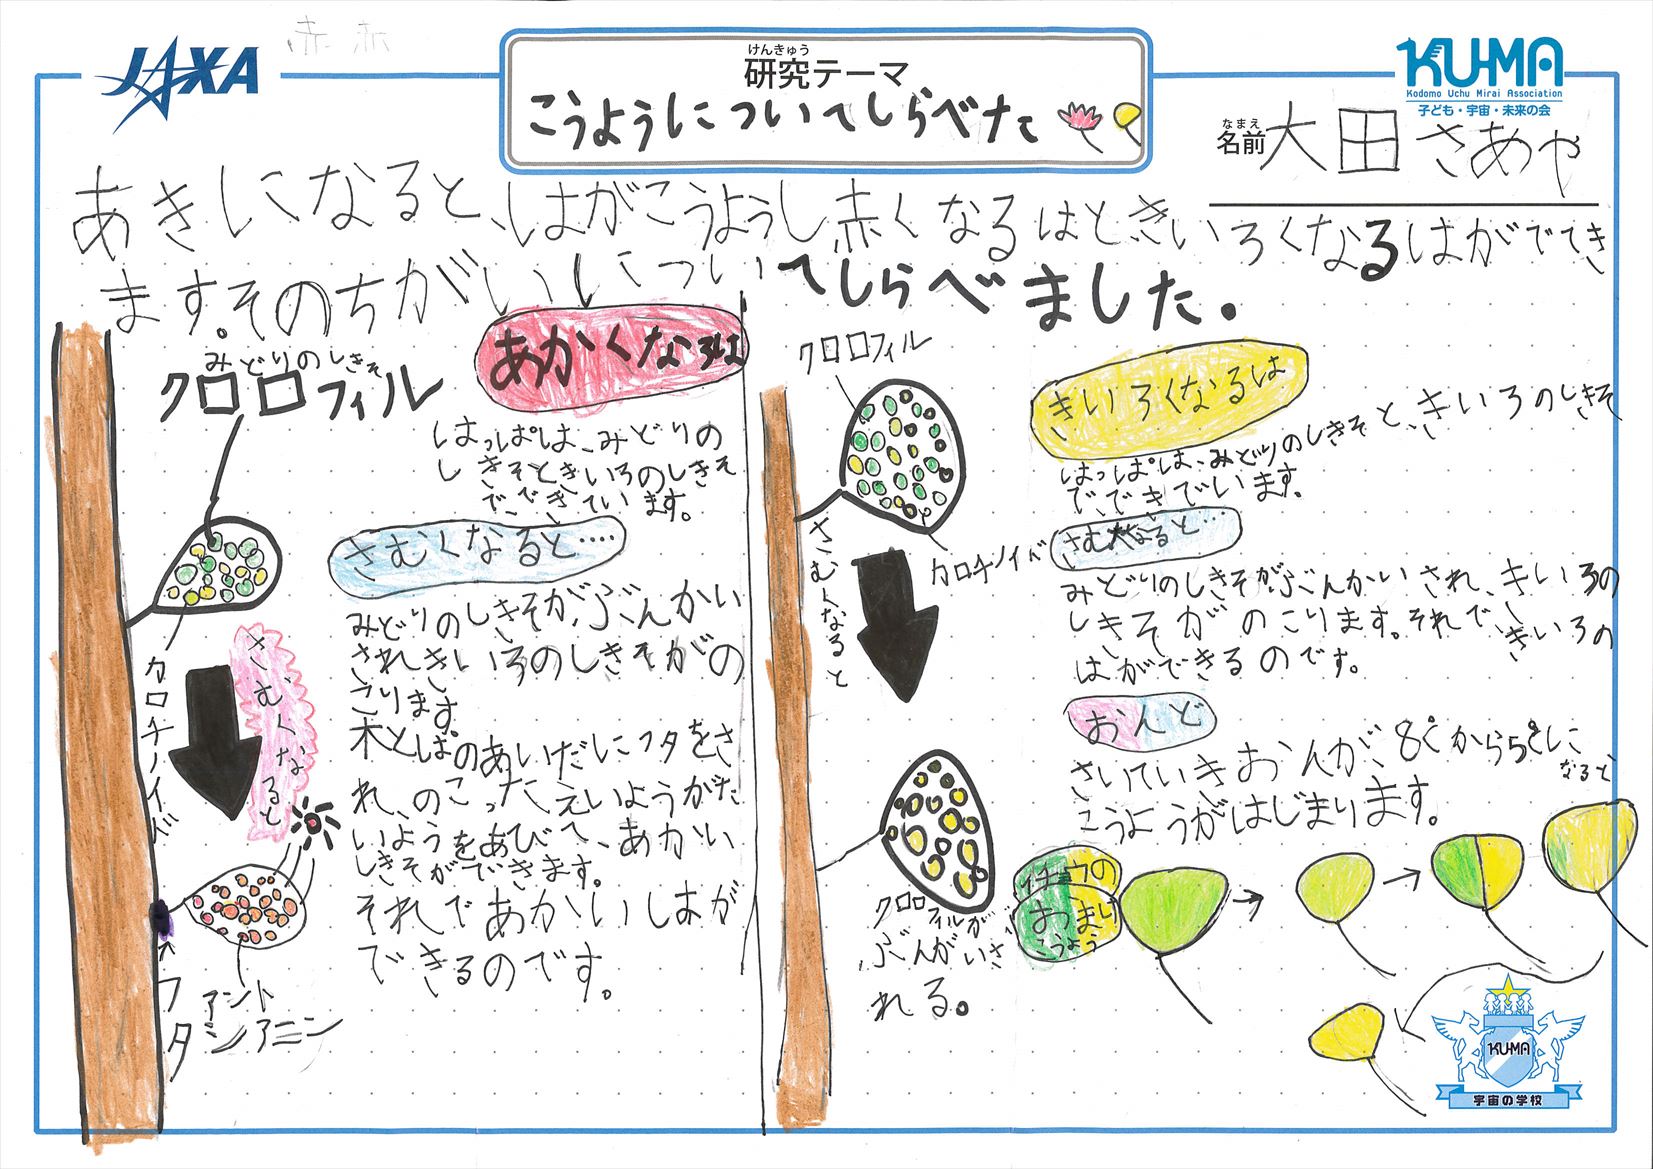 赤 赤
JAXA
けんきゅう
研究テーマ
こうようについてしらべた
KU-MA
Kodomo Uchu Mirai Association
子ども・宇宙・未来の会
なまえ
名前 大田さあや
あきになると、はがこうようし赤くなるはときいろくなるはがでてき
ます。そのちがいについてしらべました。
あかくなるは
みどりのしきそ
クロロフィル
はっぱは、みどりの
しきそときいろのしきそ
でできています。
さむくなると‥‥
みどりのしきそがぶんかい
されきいろのしきそがの
こります。
木とはのあいだにフタをさ
れ、のこったえいようがた
いようをあびて、あかい
しきそができます。
それであかいはが
できるのです。
カロチノイド
さむくなると
フタ
アント
シアニン
クロロフィル
カロチノイド
さむくなると
クロロフィルが
ぶんかいさ
れる。
きいろくなるは
はっぱは、みどりのしきそと、きいろのしきそ
でできでいます。
さむくなると…
みどりのしきそがぶんかいされ、きいろの
しきそがのこります。それで、きいろの
はができるのです。
おんど
さいていきおんが8℃から5℃に
なると
こうようがはじまります。
イチョウの
おまけ
こうよう
KU-MA
宇宙の学校